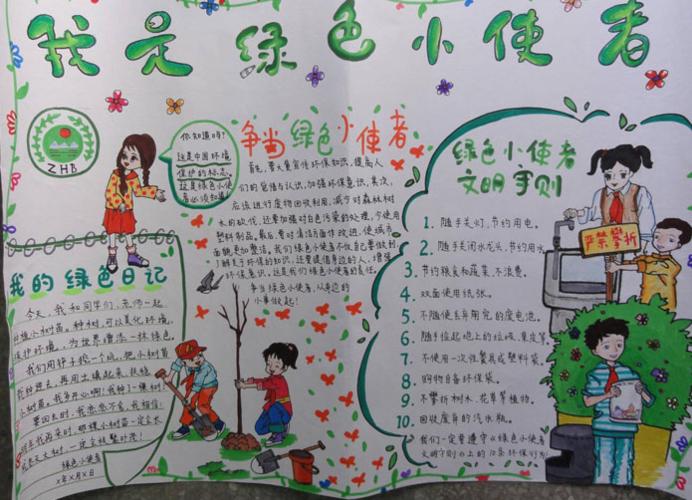 我是绿色小使者
ZHB
你知道吗?
这是中国环境
保护的标志。
这是绿色小使
者必须知道
争当绿色小使者
首先,要大量宣传环保知识,提高人
们的觉悟与认识,加强环保意识。其次,
应该进行废物回收利用,减少对森林树
木的砍伐,还要加强对白色污染的处理,少使用
塑料制品。最后,要对清洁方面作改进,使城市
面貌更加整洁。我们绿色小使者不仅自己要做到,
了解关于环保的知识,还要提倡身边的人,增强
环保意识,这是我们绿色小使者的责任。
争当绿色小使者,从身边的
小事做起!
我的绿色日记
今天,我和同学们、老师一起
小树苗。种树,可以美化环境,
保护环境,为世界增添一抹绿色。
我们用铲子挖一个坑,把小树苗
放进去,再用土填起来,扶稳
小树苗。我多开心啊!我种了一棵树!
要回去时,我恋恋不舍,我相信:
再来时,那棵小树苗一定会长
大树,一定会枝繁叶茂!
绿色小使者
X年X月X日
绿色小使者
文明守则
1. 随手关灯,节约用电。
2. 随手关闭水龙头,节约用水。
3. 节约粮食和蔬菜,不浪费。
4. 双面使用纸张。
5. 不随便丢弃用完的废电池。
6. 随手捡起地上的垃圾、果皮等。
7. 不使用一次性餐具或塑料袋。
8. 购物自备环保袋。
9. 不攀折树木、花草等植物。
10. 回收废弃的汽水瓶。
我们一定要遵守《绿色小使者
文明守则》上的10条环保行为!
严禁攀折